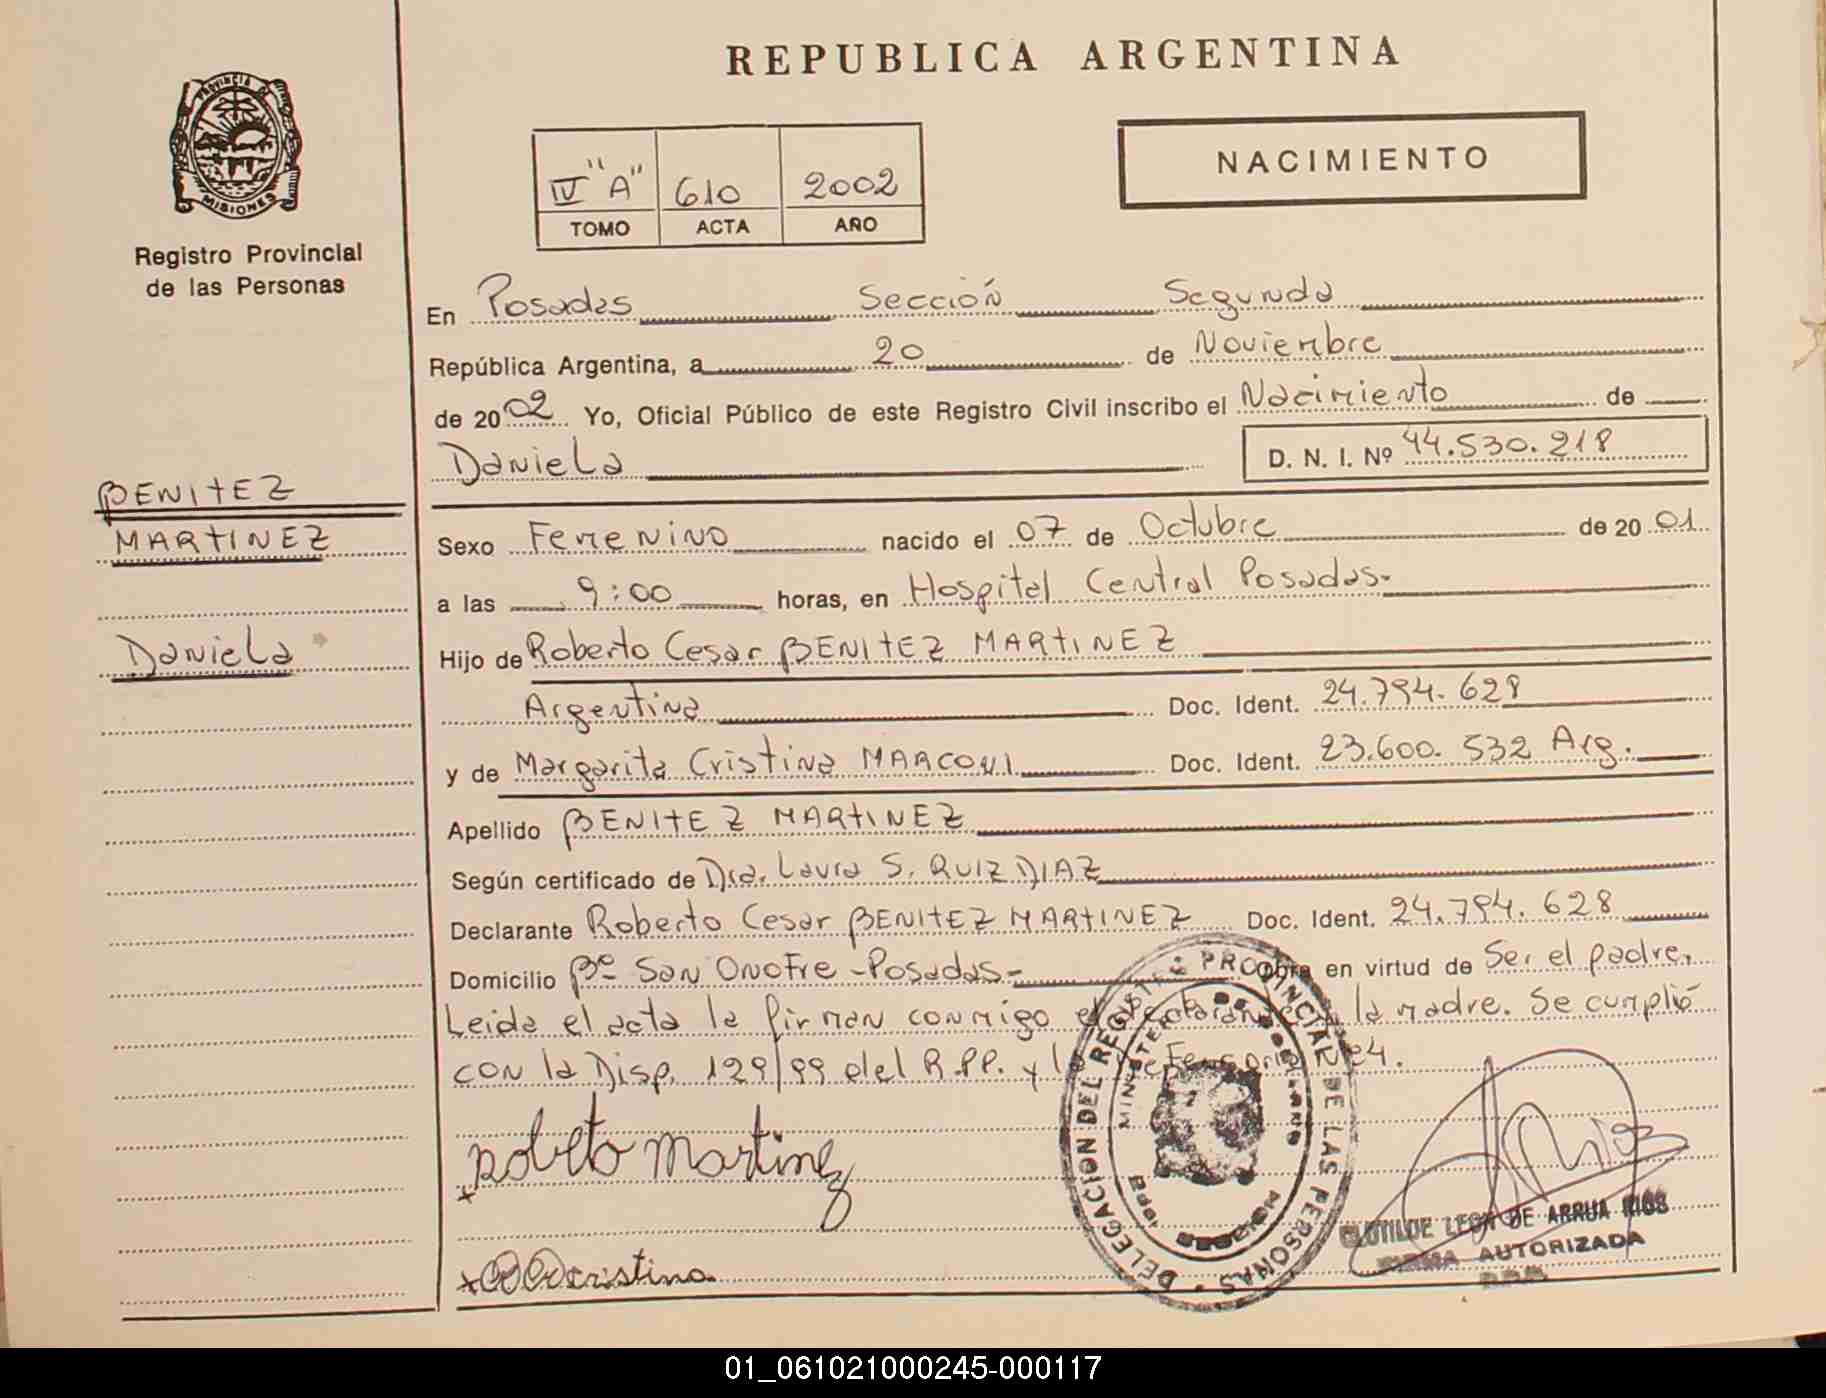 REPUBLICA ARGENTINA
Provincia de
MISIONES
Registro Provincial
de las Personas
IV "A" 610 2002
TOMO ACTA AÑO
NACIMIENTO
En Posadas Sección Segunda
República Argentina, a 20 de Noviembre
de 2002 Yo, Oficial Público de este Registro Civil inscribo el Nacimiento de
Daniela D. N. I. Nº 44.530.218
BENITEZ
MARTINEZ
Daniela
Sexo Femenino nacido el 07 de Octubre de 2001
a las 9:00 horas, en Hospital Central Posadas-
Hijo de Roberto Cesar BENITEZ MARTINEZ
Argentina Doc. Ident. 24.794.628
y de Margarita Cristina MARCONI Doc. Ident. 23.600.532 Arg.
Apellido BENITEZ MARTINEZ
Según certificado de Dra. Laura S. RUIZ DIAZ
Declarante Roberto Cesar BENITEZ MARTINEZ Doc. Ident. 24.794.628
Domicilio Bº San Onofre - Posadas- Obra en virtud de Ser el padre.
Leida el acta la firman conmigo el declarante y la madre. Se cumplió
con la Disp. 129/99 del R.P.P. y
Roberto Martinez
Cristina
DELEGACION DEL REGISTRO PROVINCIAL DE LAS PERSONAS
MINISTERIO DE GOBIERNO
MISIONES
CLOTILDE LEON DE ARRUA RIOS
FIRMA AUTORIZADA
01_061021000245-000117